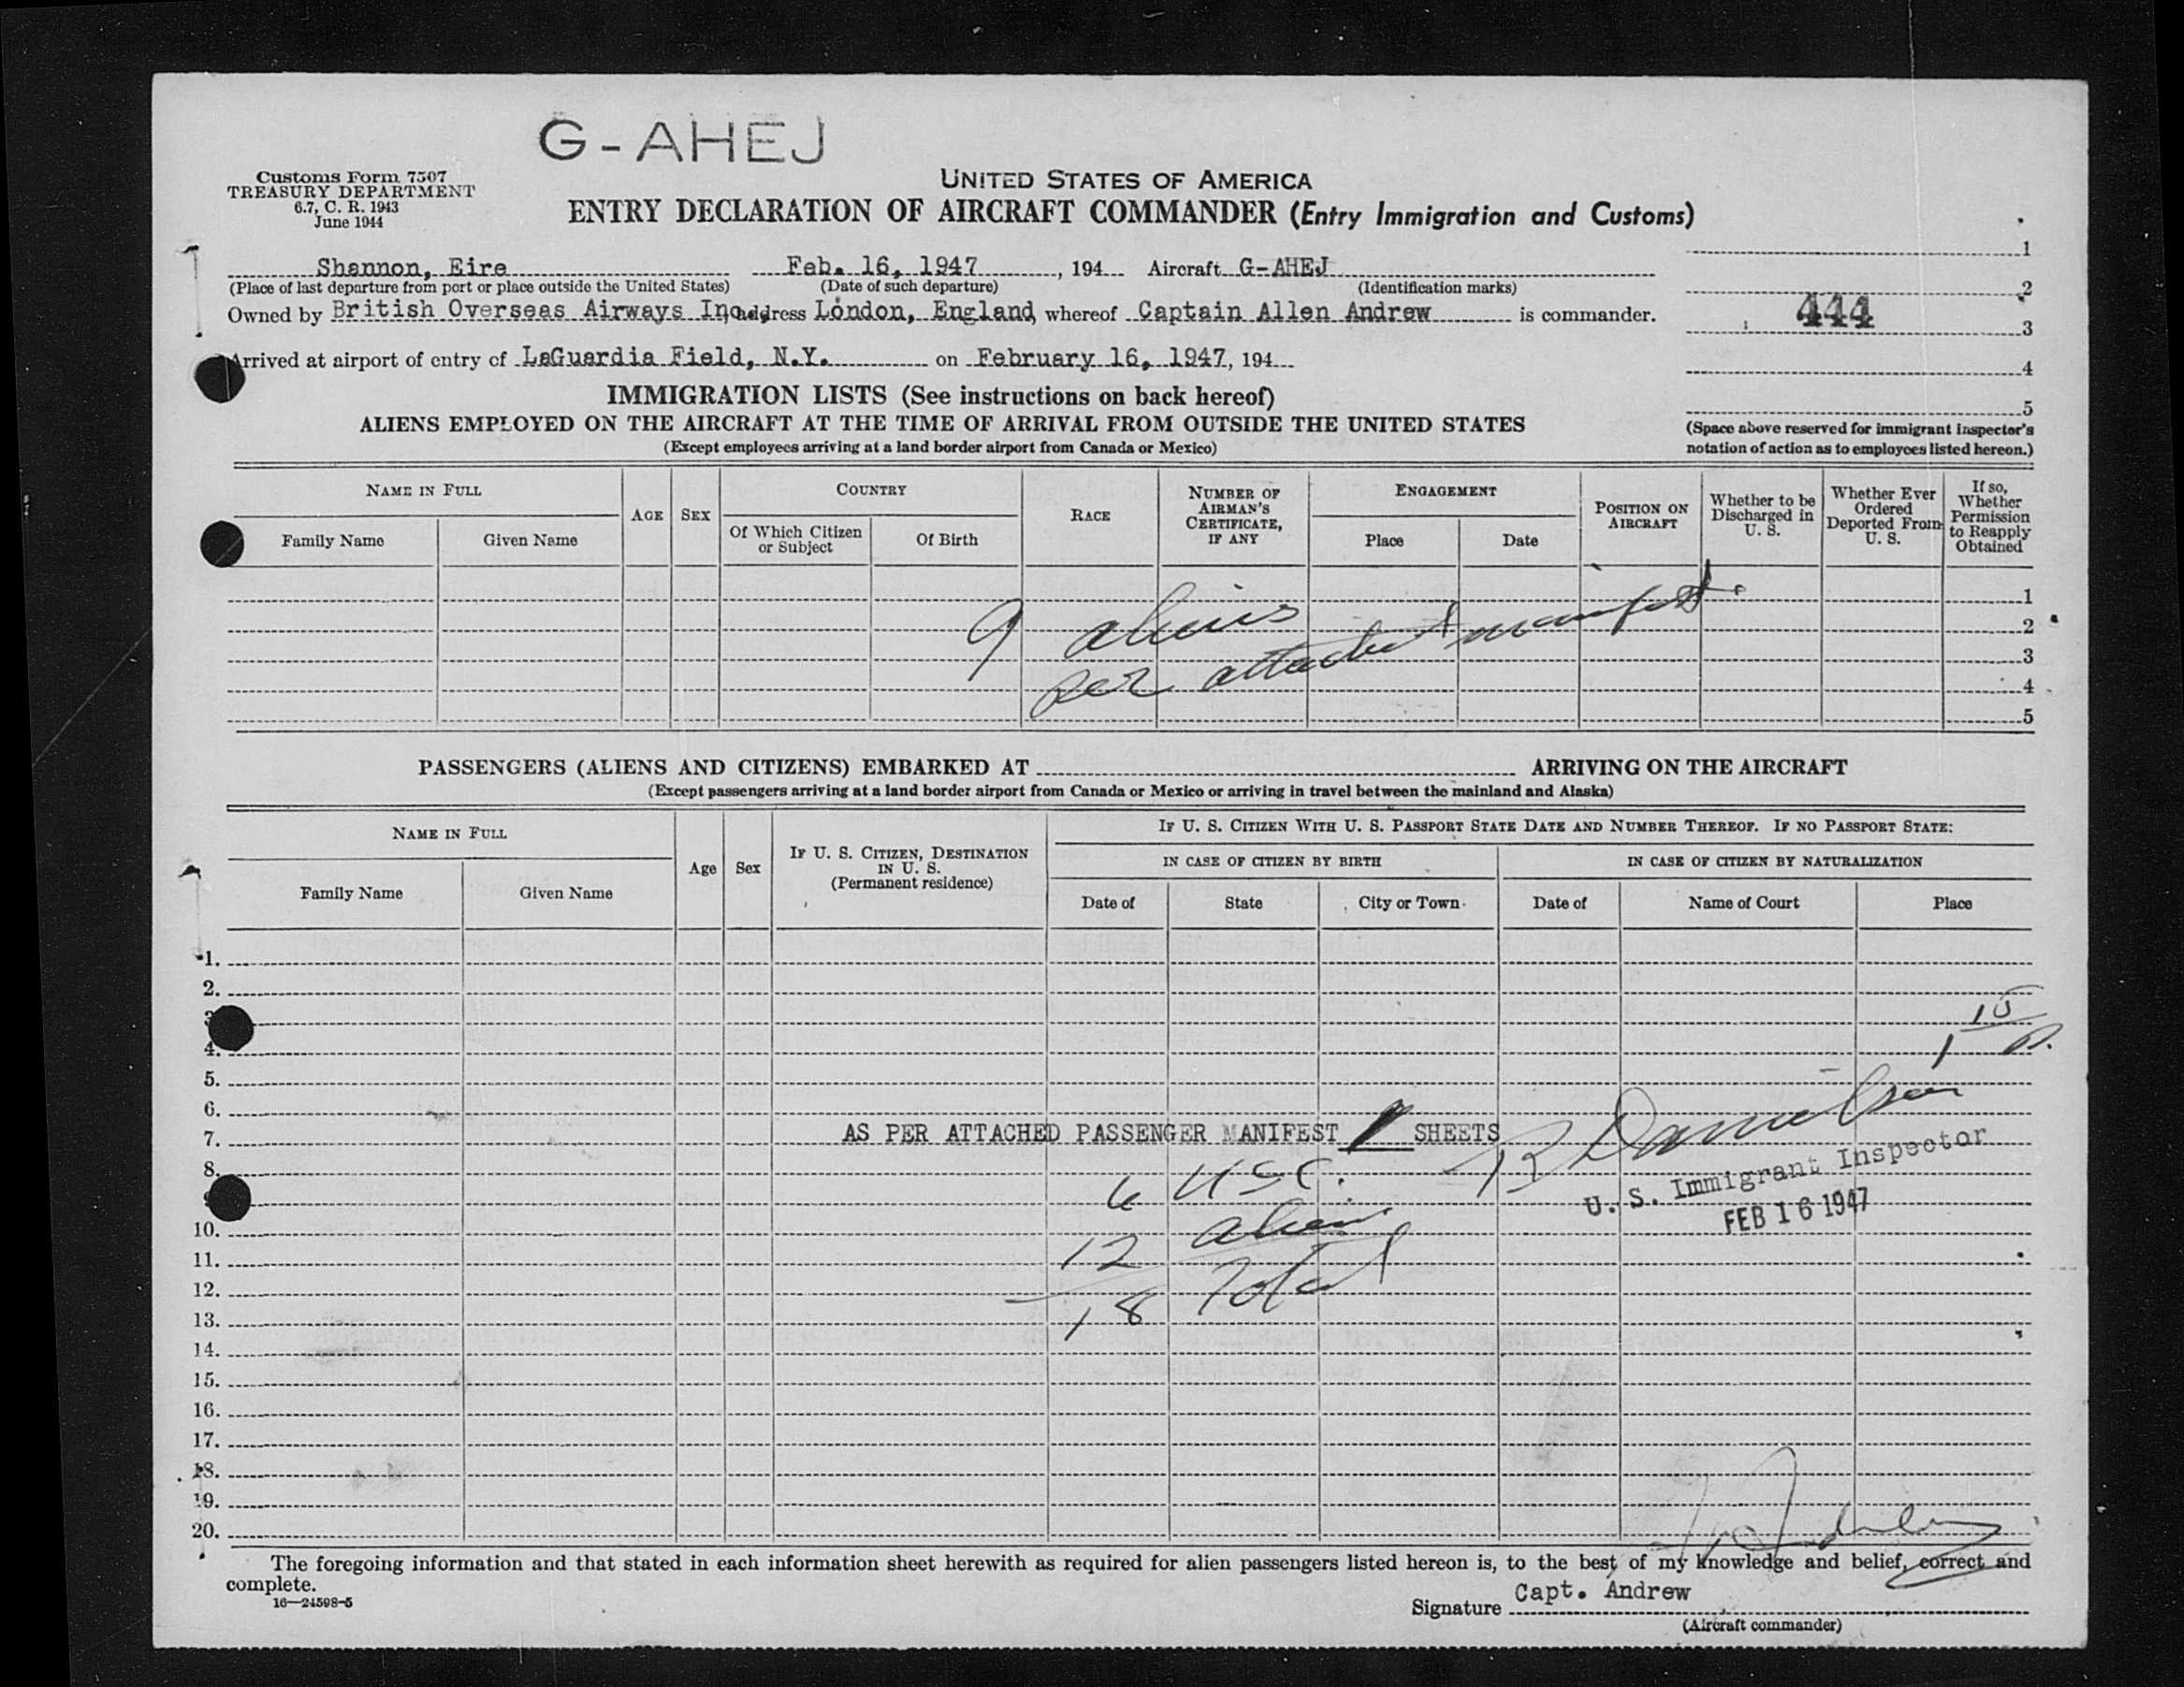 G-AHEJ
Customs Form 7507
TREASURY DEPARTMENT
6.7, C. R. 1943
June 1944
UNITED STATES OF AMERICA
ENTRY DECLARATION OF AIRCRAFT COMMANDER (Entry Immigration and Customs)
Shannon, Eire Feb. 16, 1947, 194 Aircraft G-AHEJ
(Place of last departure from port or place outside the United States) (Date of such departure) (Identification marks)
Owned by British Overseas Airways Inc address London, England whereof Captain Allen Andrew is commander.
Arrived at airport of entry of LaGuardia Field, N.Y. on February 16, 1947, 194
1
2
444
3
4
5
(Space above reserved for immigrant inspector's
notation of action as to employees listed hereon.)
IMMIGRATION LISTS (See instructions on back hereof)
ALIENS EMPLOYED ON THE AIRCRAFT AT THE TIME OF ARRIVAL FROM OUTSIDE THE UNITED STATES
(Except employees arriving at a land border airport from Canada or Mexico)
NAME IN FULL
Family Name
Given Name
AGE
SEX
COUNTRY
Of Which Citizen
or Subject
Of Birth
RACE
NUMBER OF
AIRMAN'S
CERTIFICATE,
IF ANY
ENGAGEMENT
Place
Date
POSITION ON
AIRCRAFT
Whether to be
Discharged in
U. S.
Whether Ever
Ordered
Deported From
U. S.
If so,
Whether
Permission
to Reapply
Obtained
1
2
3
4
5
9 aliens
per attached manifest.
PASSENGERS (ALIENS AND CITIZENS) EMBARKED AT ARRIVING ON THE AIRCRAFT
(Except passengers arriving at a land border airport from Canada or Mexico or arriving in travel between the mainland and Alaska)
NAME IN FULL
Family Name
Given Name
Age
Sex
IF U. S. CITIZEN, DESTINATION
IN U. S.
(Permanent residence)
IF U. S. CITIZEN WITH U. S. PASSPORT STATE DATE AND NUMBER THEREOF. IF NO PASSPORT STATE:
IN CASE OF CITIZEN BY BIRTH
IN CASE OF CITIZEN BY NATURALIZATION
Date of
State
City or Town
Date of
Name of Court
Place
1.
2.
4.
5.
6.
7.
8.
10.
11.
12.
13.
14.
15.
16.
17.
18.
19.
20.
AS PER ATTACHED PASSENGER MANIFEST 1 SHEETS
6 USC.
12 alien
18 Total
R Danielson
U. S. Immigrant Inspector
FEB 16 1947
The foregoing information and that stated in each information sheet herewith as required for alien passengers listed hereon is, to the best of my knowledge and belief, correct and
complete.
16—24598-5
Signature Capt. Andrew
(Aircraft commander)